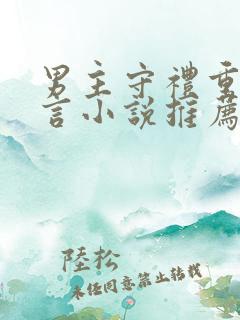 男主守禮重
言小说推薦
陸松
未经同意禁止转载